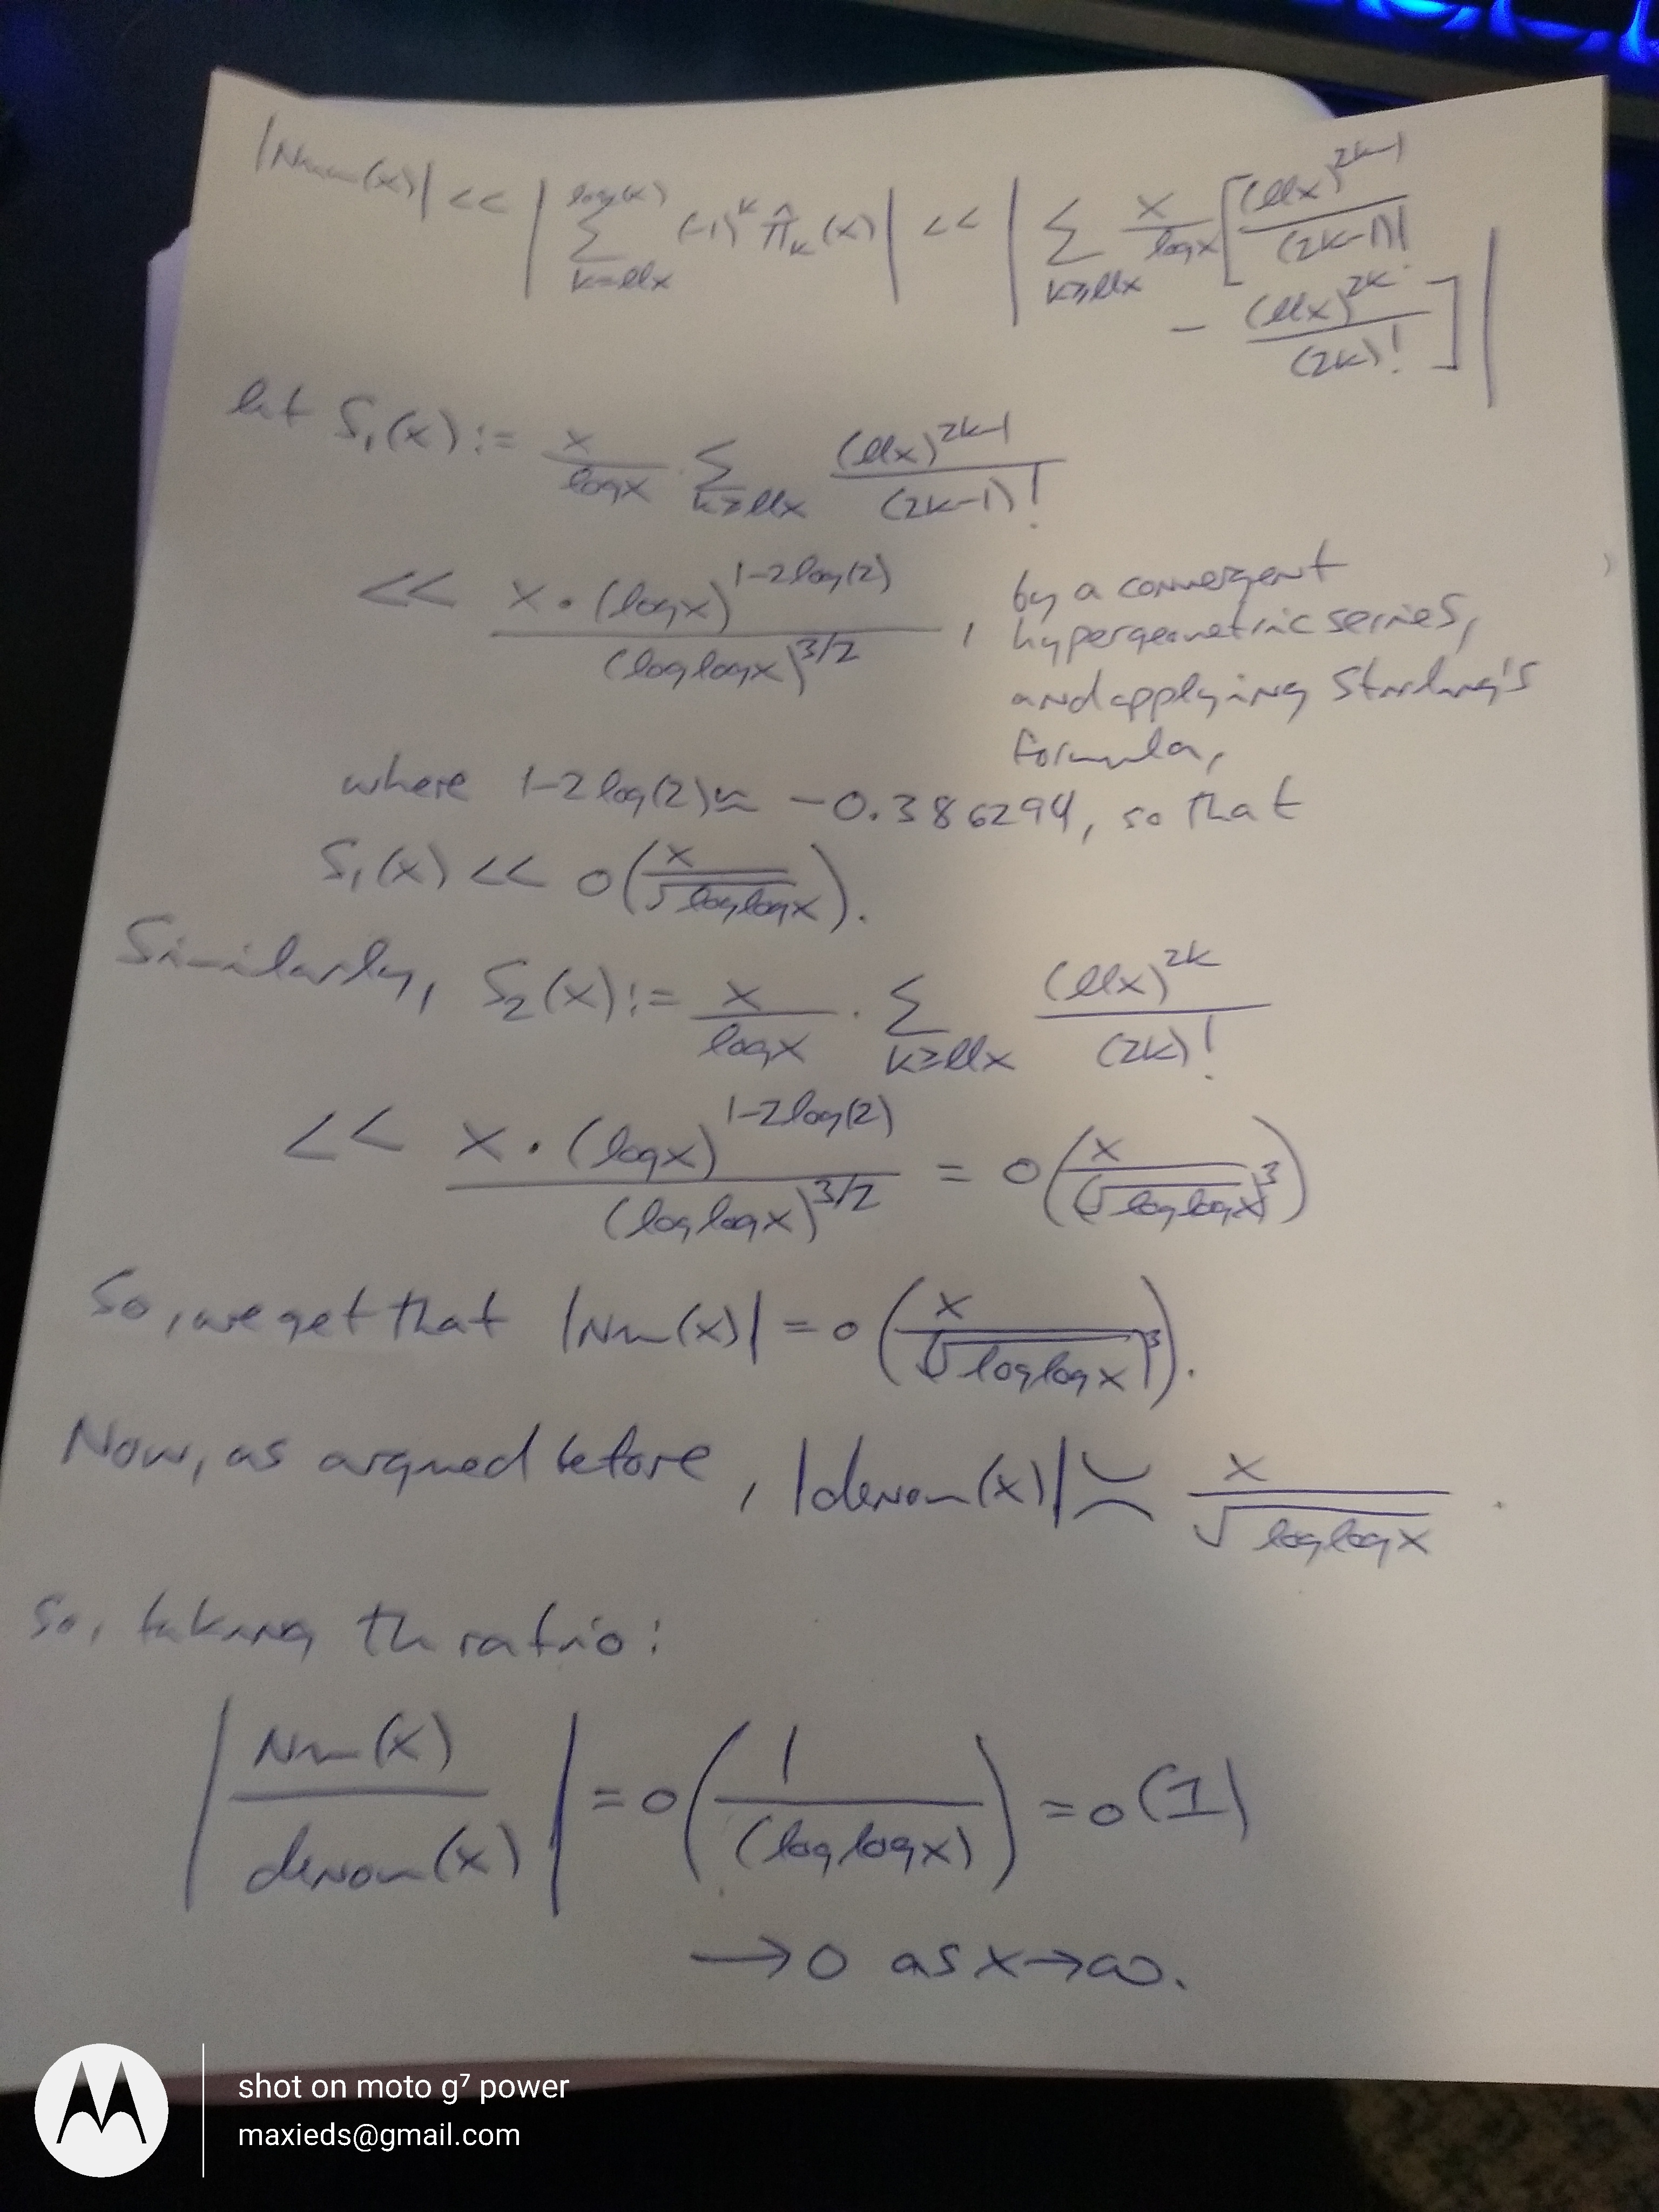 |Num(x)| << | ∑_{k=llx}^{log(x)} (-1)^k π̂_k(x) | << | ∑_{k≥llx} x/logx [ (llx)^{2k-1}/(2k-1)!
- (llx)^{2k}/(2k)! ] |
let S₁(x) := x/logx · ∑_{k≥llx} (llx)^{2k-1}/(2k-1)!
<< x·(logx)^{1-2log(2)}/(loglogx)^{3/2} , by a convergent
hypergeometric series,
and applying Stirling's
formula,
where 1-2log(2) ≈ -0.386294, so that
S₁(x) << o(x/√loglogx).
Similarly, S₂(x) := x/logx · ∑_{k≥llx} (llx)^{2k}/(2k)!
<< x·(logx)^{1-2log(2)}/(loglogx)^{3/2} = o(x/(√loglogx)^3)
So, we get that |Num(x)| = o(x/(√loglogx)^3).
Now, as argued before, |denom(x)| ≍ x/√loglogx .
So, taking th ratio:
| Num(x)/denom(x) | = o(1/(loglogx)) = o(1)
→ 0 as x→∞.
shot on moto g⁷ power
maxieds@gmail.com